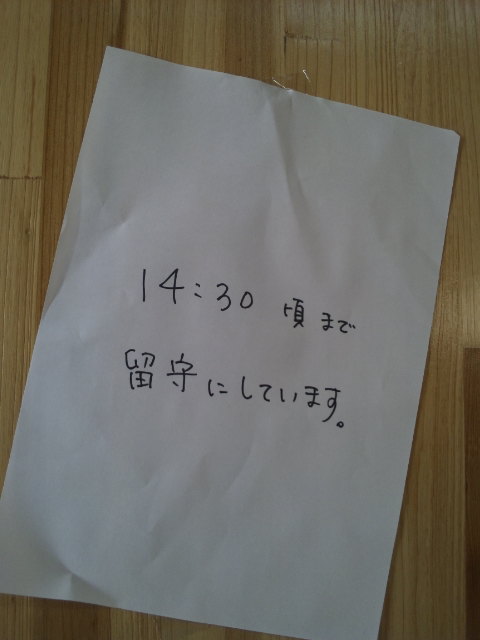 14:30 頃まで
留守にしています。